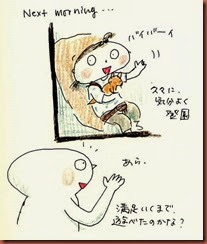 Next morning...
バイバーイ
久々に、
気分よく
登園
あら。
満足いくまで、
遊べたのかな?